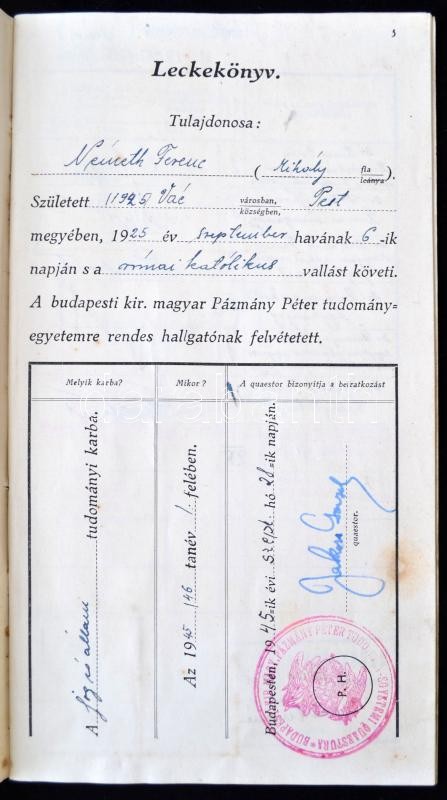 3
Leckekönyv.
Tulajdonosa:
Németh Ferenc (Mihály fia leánya).
Született 1925 Vác városban, községben, Pest
megyében, 1925 év szeptember havának 6-ik
napján s a római katolikus vallást követi.
A budapesti kir. magyar Pázmány Péter tudomány=
egyetemre rendes hallgatónak felvétetett.
Melyik karba?
Mikor?
A quaestor bizonyítja a beiratkozást
A jog és állam tudományi karba.
Az 1945/46 tanév 1 felében.
Budapesten, 1945=ik évi szept. hó =ik napján.
quaestor.
P. H.
PÁZMÁNY PÉTER EGYETEMI QUAESTURA * BUDAPEST
darabanth.com